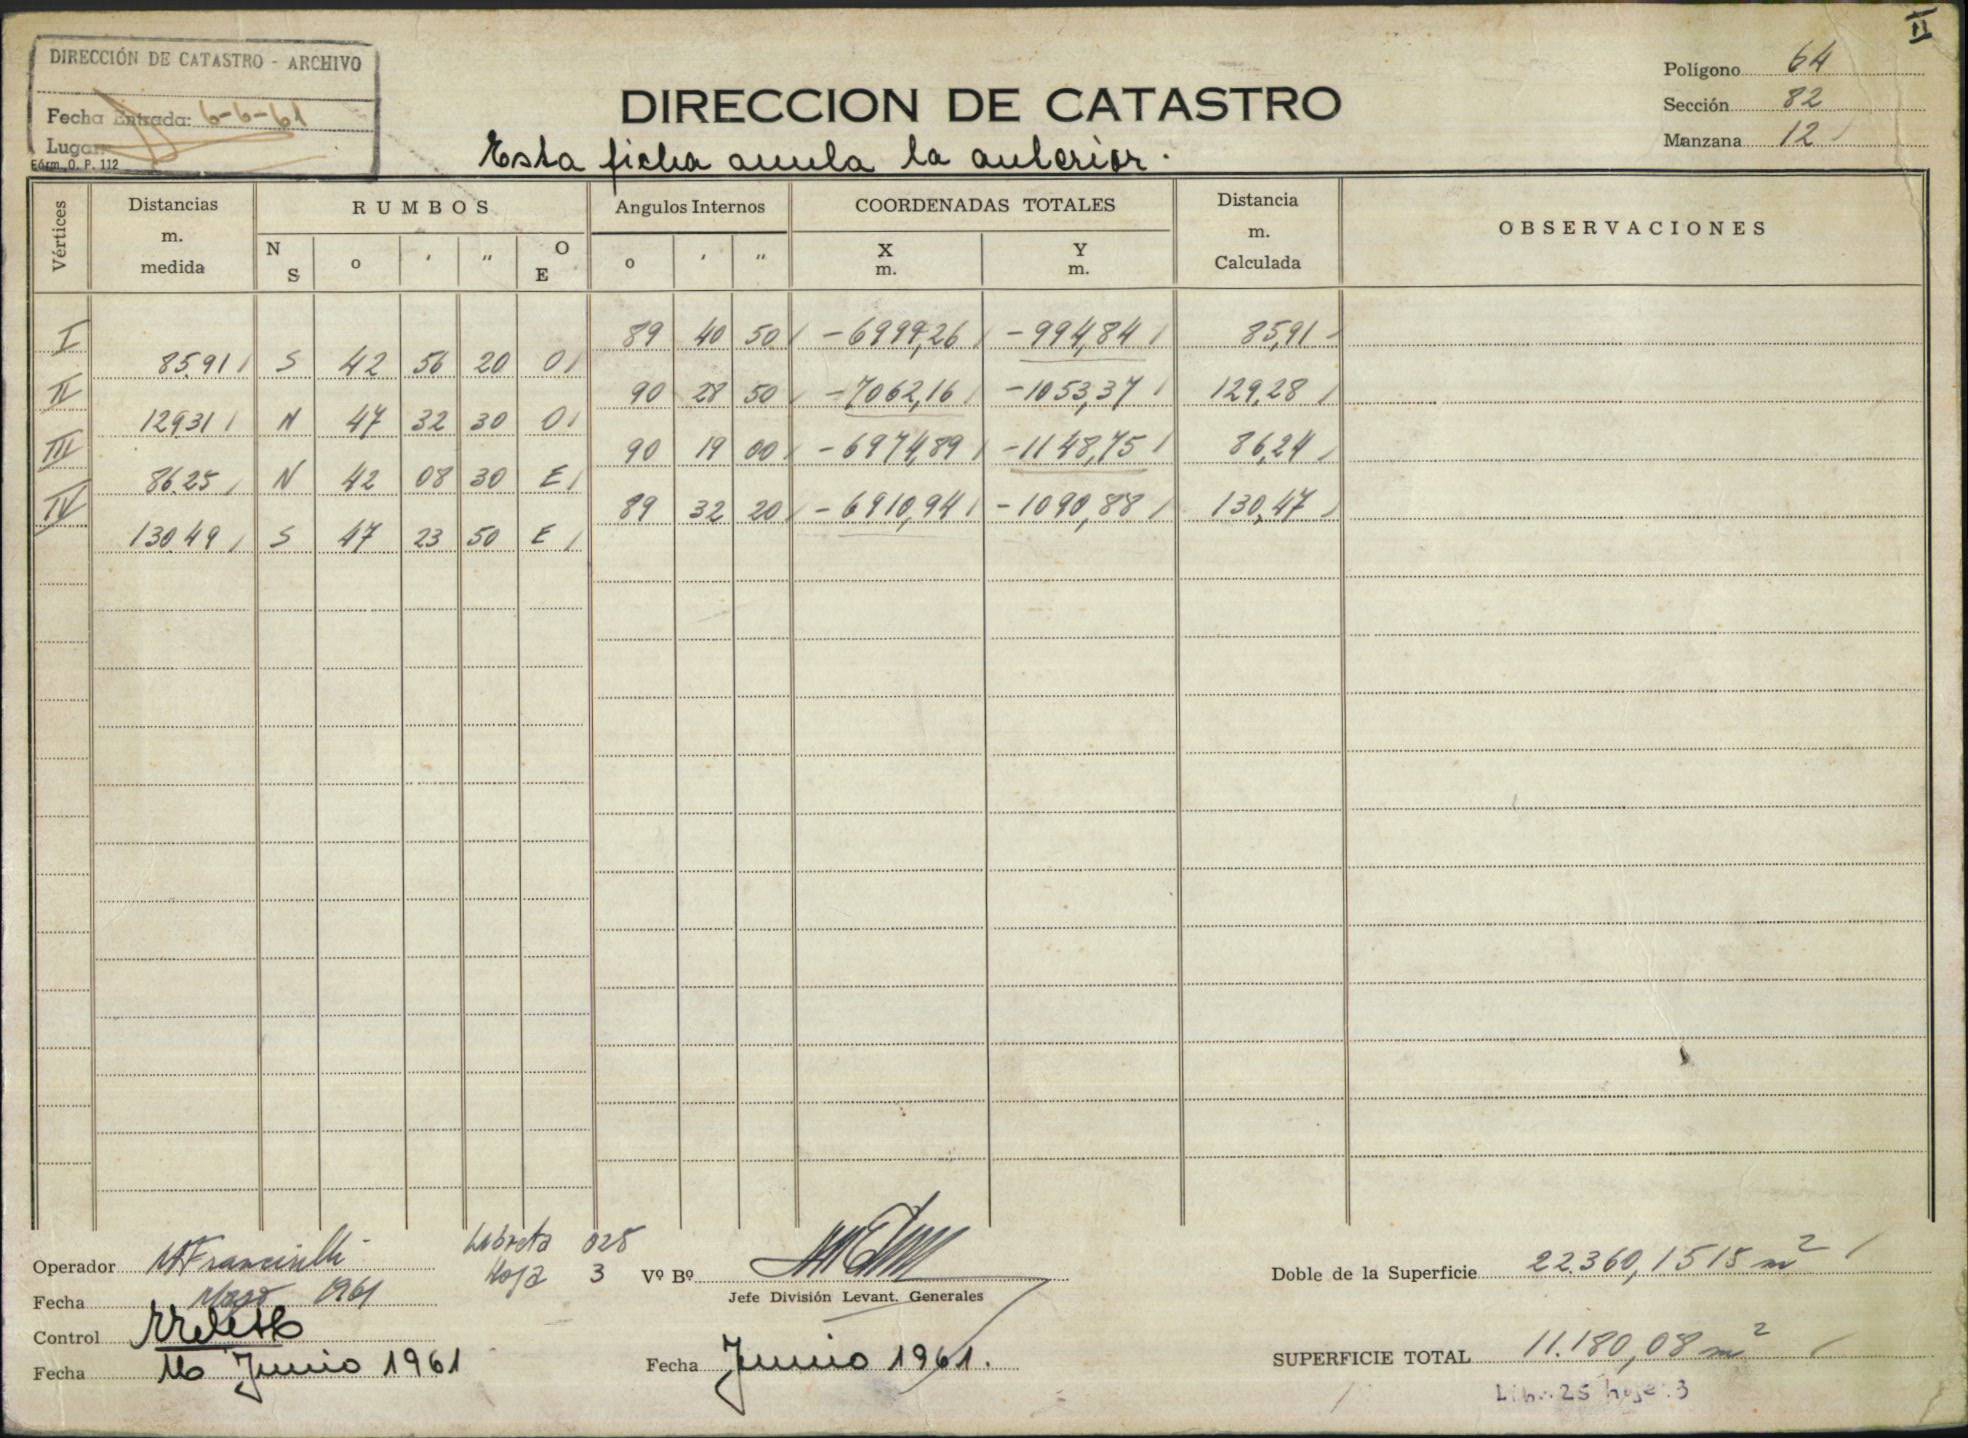 II
DIRECCIÓN DE CATASTRO - ARCHIVO
Fecha Entrada: 6-6-61
Lugar
Fórm. O. P. 112
DIRECCION DE CATASTRO
Esta ficha anula la anterior.
Polígono 64
Sección 82
Manzana 12
Vértices
Distancias m. medida
RUMBOS
N S o ' " O E
Angulos Internos
o ' "
COORDENADAS TOTALES
X m.
Y m.
Distancia m. Calculada
OBSERVACIONES
I 89 40 50 -6999,26 -994,84 85,91
85.91 S 42 56 20 O
II 90 28 50 -7062,16 -1053,37 129,28
129.31 N 47 32 30 O
III 90 19 00 -6974,89 -1148,75 86,24
86.25 N 42 08 30 E
IV 89 32 20 -6910,94 -1090,88 130,47
130.49 S 47 23 50 E
Operador
Fecha Mayo 1961
Control
Fecha 16 Junio 1961
Libreta 025
Hoja 3
Vº Bº
Jefe División Levant. Generales
Fecha Junio 1961.
Doble de la Superficie 22.360,1515 m²
SUPERFICIE TOTAL 11.180,08 m²
Lib. 25 hoja 3